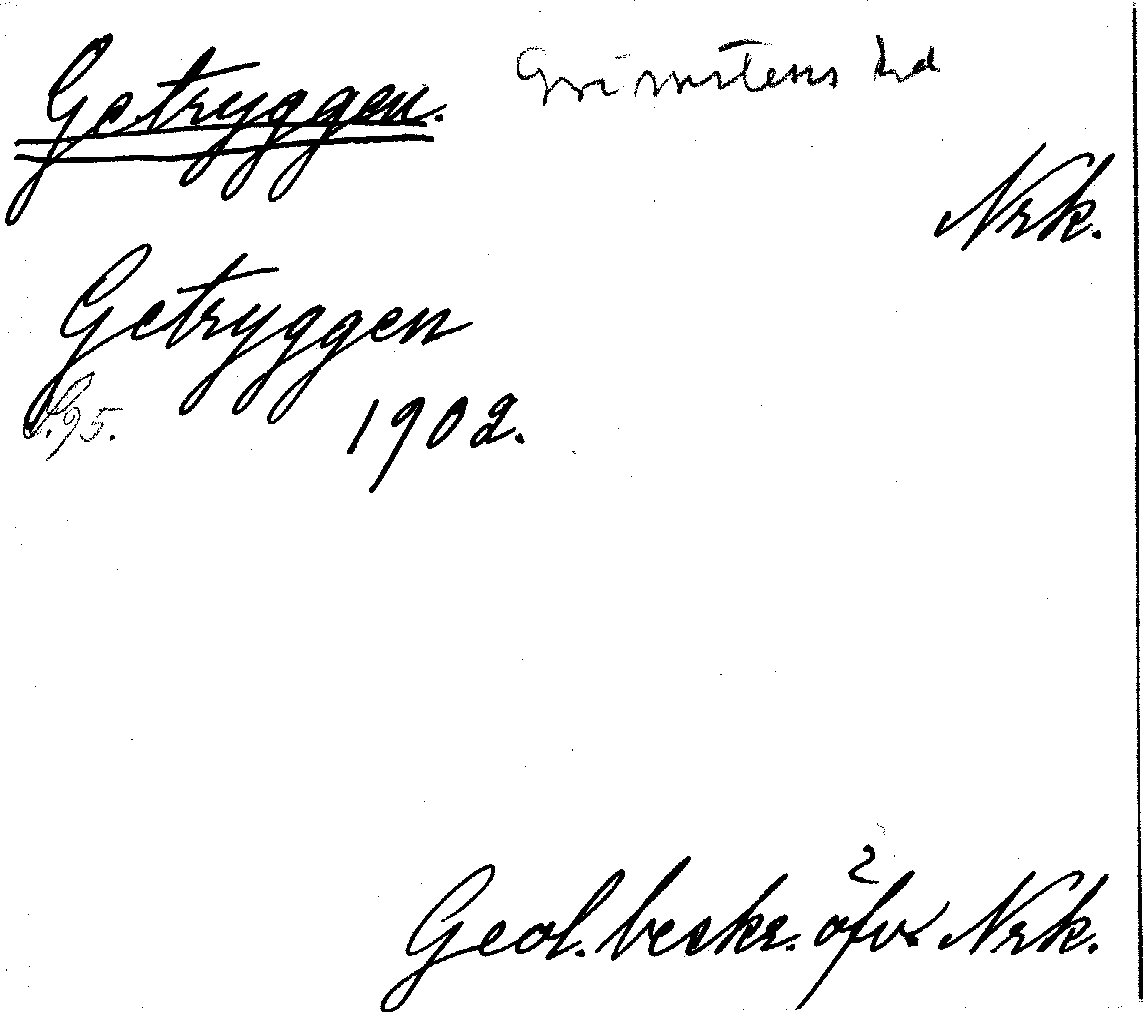 Getryggen. Grimstens hd
Nrk.
Getryggen
S. 95. 1902.
Geol. beskr. öfv. Nrk.